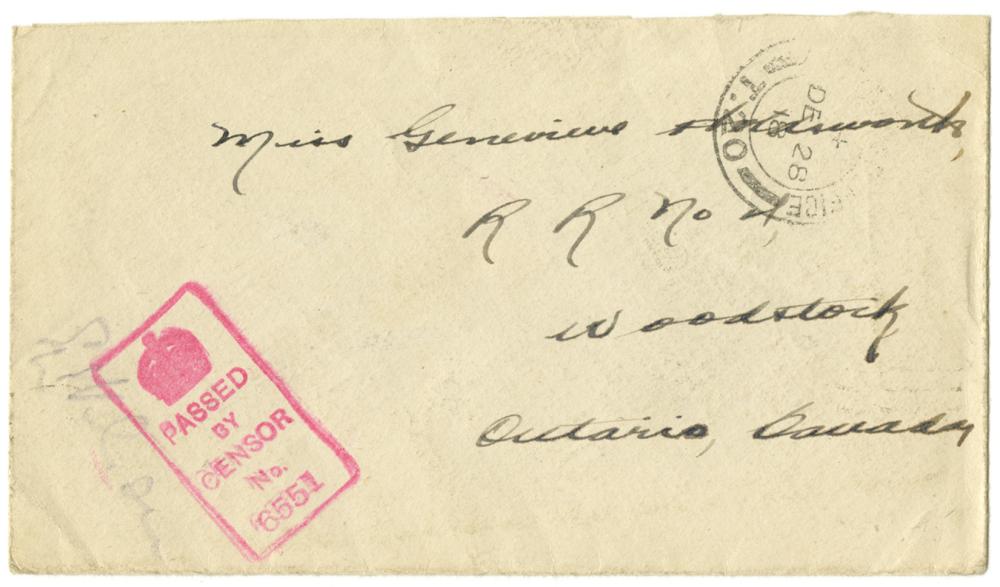 Miss Genevieve
R R No 4,
Woodstock
Ontario, Canada
T.20
DE 28
18
PASSED
BY
CENSOR
No.
6551